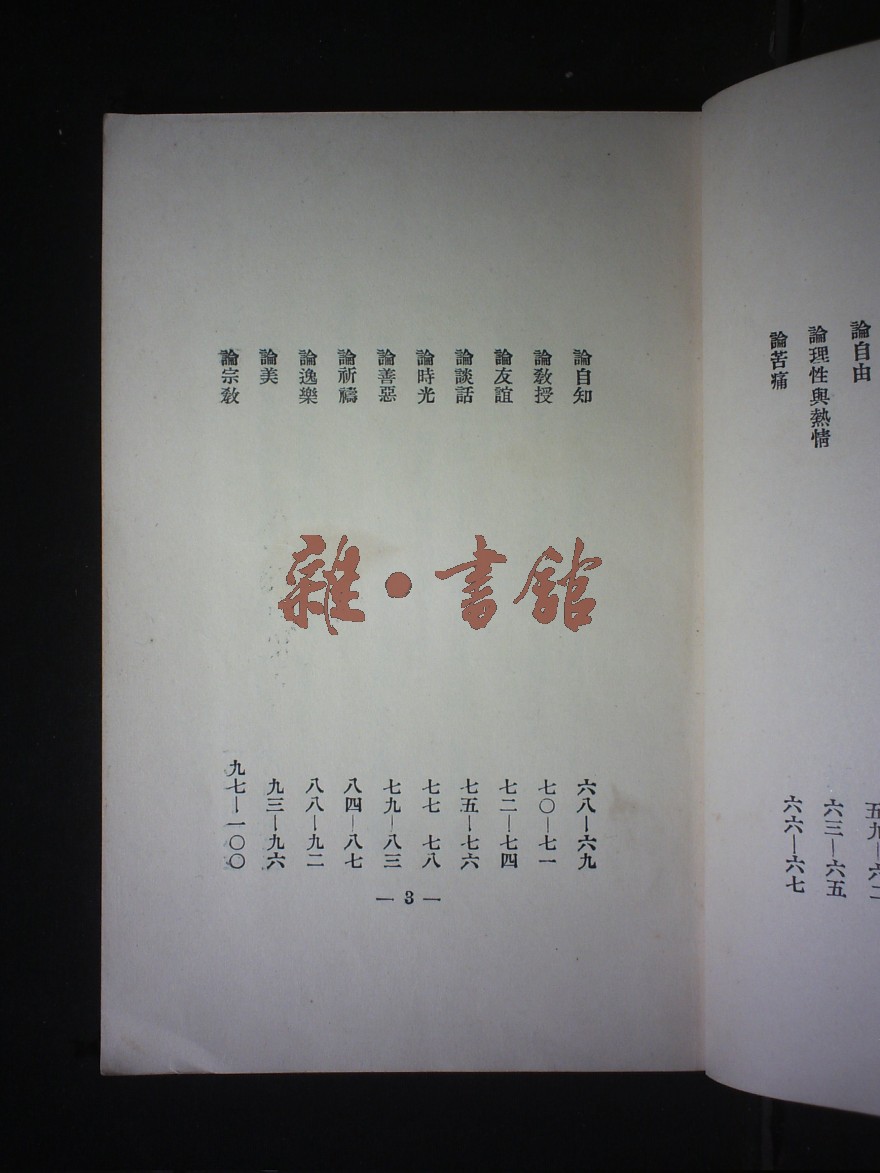 論自由
五九—六二
論理性與熱情
六三—六五
論苦痛
六六—六七
論自知
六八—六九
論敎授
七〇—七一
論友誼
七二—七四
論談話
七五—七六
論時光
七七 七八
論善惡
七九—八三
論祈禱
八四—八七
論逸樂
八八—九二
論美
九三—九六
論宗敎
九七—一〇〇
— 3 —
雜·書館